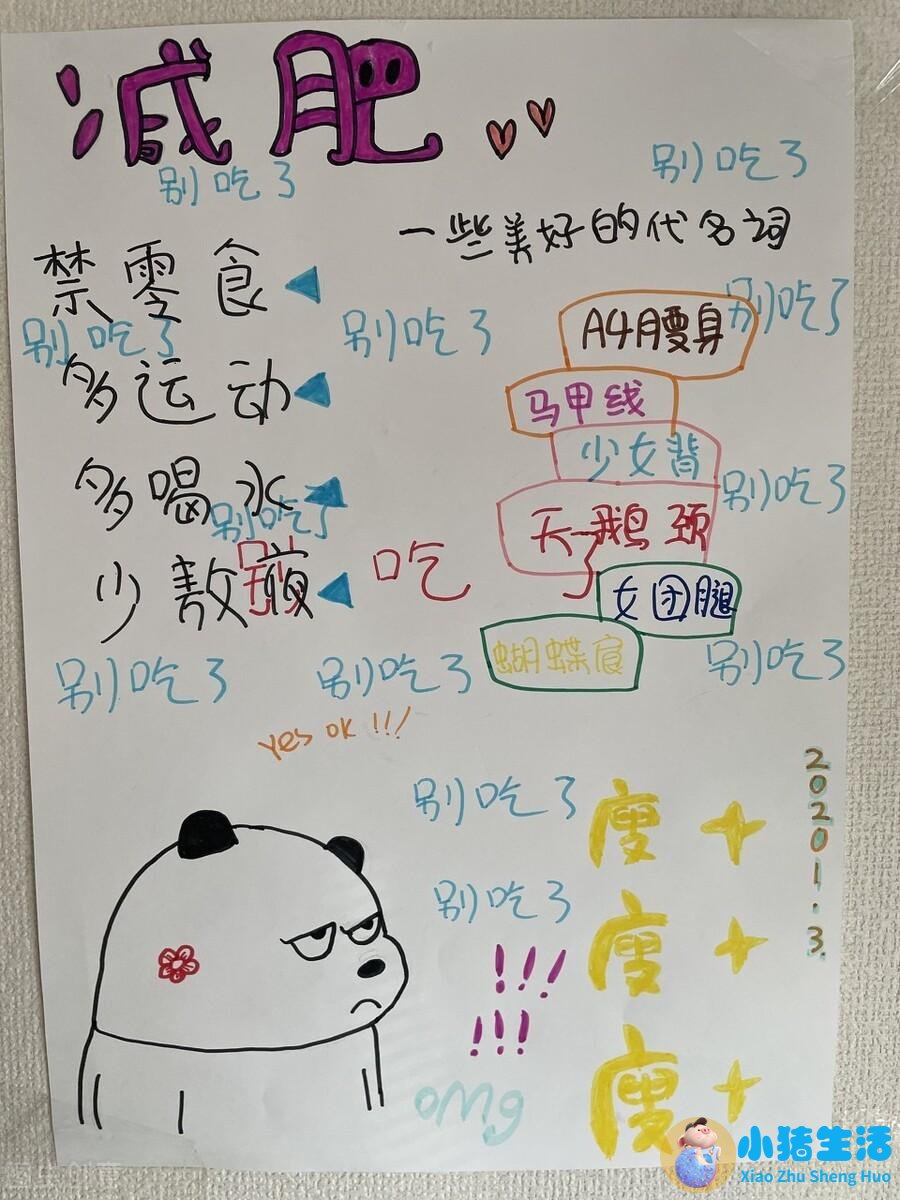 减肥
别吃了
别吃了
一些美好的代名词
禁零食
别吃了
A4腰身
别吃了
别吃了
多运动
马甲线
少女背
多喝水
别吃了
别吃了
天鹅颈
少敖夜
别吃
女团腿
蝴蝶肩
别吃了
别吃了
别吃了
yes ok !!!
2020.1.3.
别吃了
瘦+
别吃了
瘦+
!!!
!!!
瘦+
omg
小猪生活
Xiao Zhu Sheng Huo